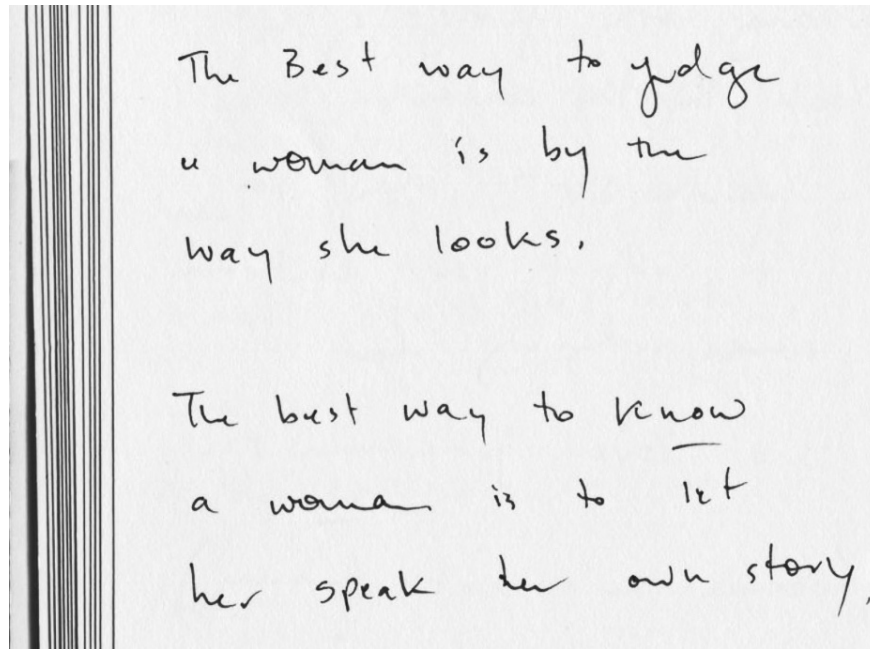 The Best way to judge
a woman is by the
way she looks.
The best way to know
a woman is to let
her speak her own story.